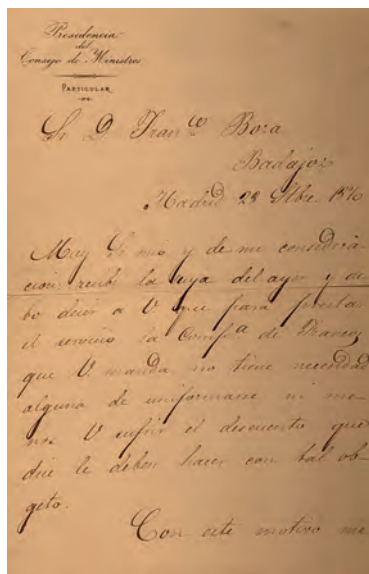 Presidencia
del
Consejo de Ministros
PARTICULAR
Sr. D. Franco Boza
Badajoz
Madrid 28 Obre. 1870
Muy Sr. mio y de mi considera-
cion: recibi la suya del ayer y de-
bo decir a V. que para prestar
el servicio la Compa. de Francos
que V. manda no tiene necesidad
alguna de uniformarse ni me-
nos V. sufrir el descuento que
dice le deben hacer con tal ob-
geto.
Con este motivo me